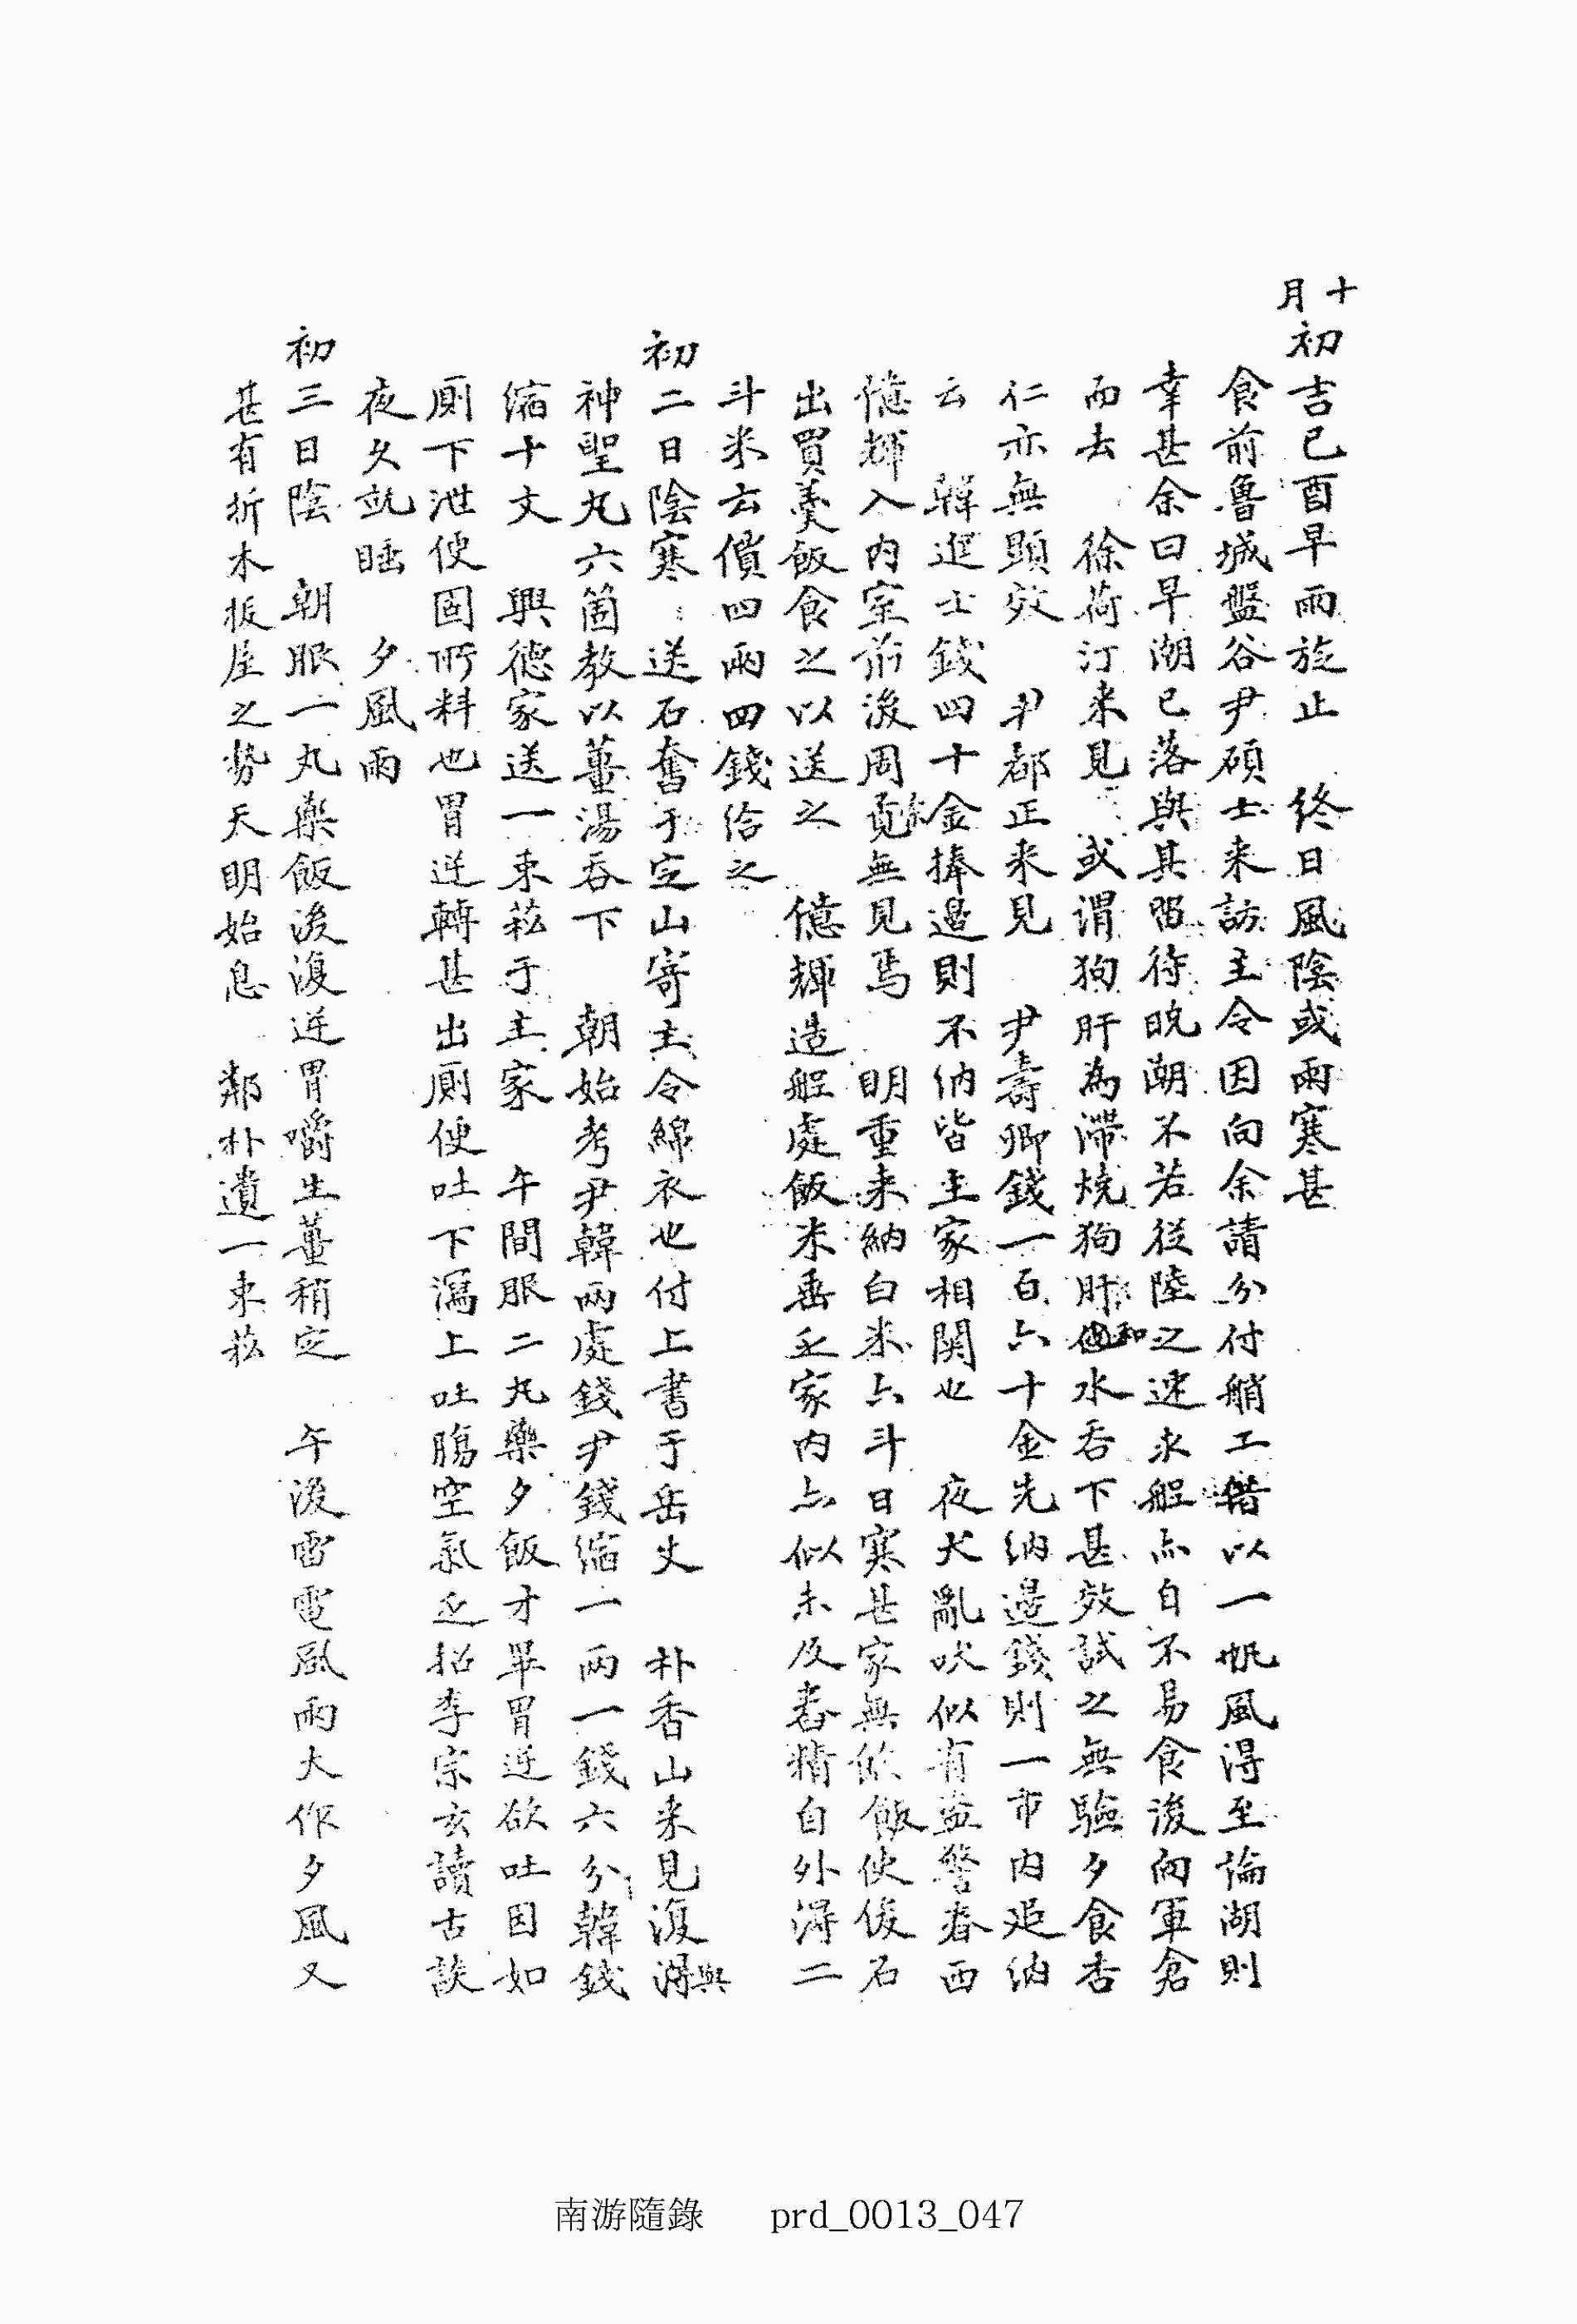 十月
初吉己酉早雨旋止 終日風陰或雨寒甚
食前魯城盤谷尹碩士来訪主令因向余請分付艄工借以一帆風得至論湖則
幸甚余曰早潮已落與其留待晚潮不若從陸之速永舡亦自不易食後向軍倉
而去 徐荷汀来見 或謂狗肝為滯燒狗肝和水呑下甚效試之無驗夕食杏
仁亦無顯效 尹都正来見 尹壽卿錢一百六十金先納邊錢則一市内延納
云 韓進士錢四十金捧邊則不納皆主家相関也 夜犬亂吠似有盜警春西
億輝入内室前後周覓無見焉 明重来納白米六斗日寒甚家無饮飯使俊石
出買羹飯食之以送之 億輝造舡處飯米垂乏家内亦似未及舂精自外得二
斗米去償四兩四錢給之
初二日陰寒 送石奮于定山寄主令綿衣也付上書于岳丈 朴香山来見復得與
神聖丸六箇教以薑湯呑下 朝始考尹韓兩處錢尹錢縮一兩一錢六分韓錢
縮十文 興德家送一束菘于主家 午間服二丸藥夕飯才畢胃逆欲吐因如
厠下泄使固所料也胃逆轉甚出厠便吐下瀉上吐膓空氣乏招李宗玄讀古談
夜久就睡 夕風雨
初三日陰 朝服一丸藥飯後復逆胃嚼生薑稍定 午後雷電風雨大作夕風又
甚有折木振屋之势天明始息 鄰朴遺一束菘
南游隨錄 prd_0013_047